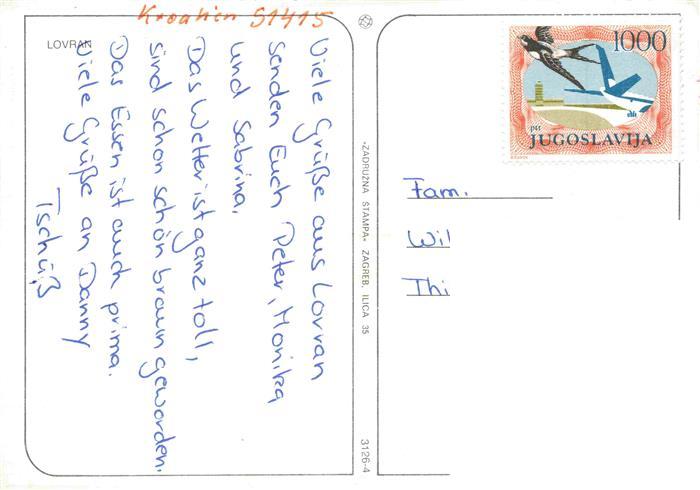 Kroatien 51415
LOVRAN
Viele Grüße aus Lovran
senden Euch Peter, Monika
und Sabrina.
Das Wetter ist ganz toll,
sind schon schön braun geworden.
Das Essen ist auch prima.
Viele Grüße an Danny
Tschüß
»ZADRUŽNA ŠTAMPA« ZAGREB, ILICA 35
3126-4
1000
ptt
JUGOSLAVIJA
Fam.
Wil
Thi